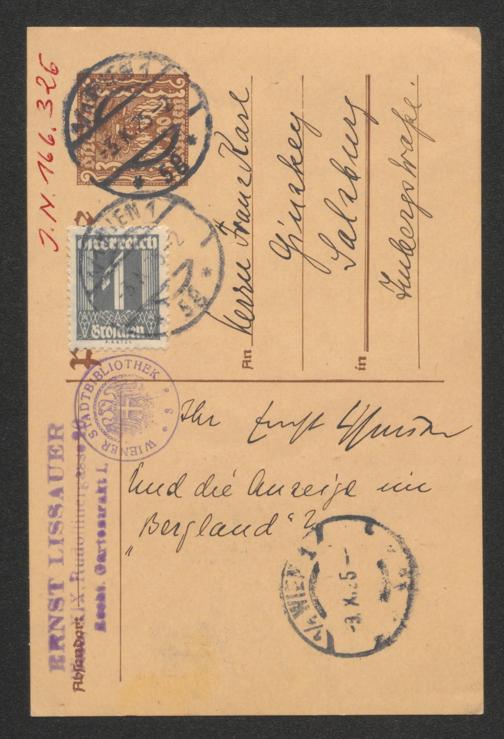 J.N. 166.326
WIEN 1
Österreich
1
Groschen
WIEN 1
An Herrn Franz Karl
Ginzkey
Salzburg
in
Imbergstraße.
WIENER STADTBIBLIOTHEK
Ihr Ernst Lissauer
Und die Anzeige im
„Bergland“?
1/1 WIEN 1
-3.X.25-
ERNST LISSAUER
Absender: